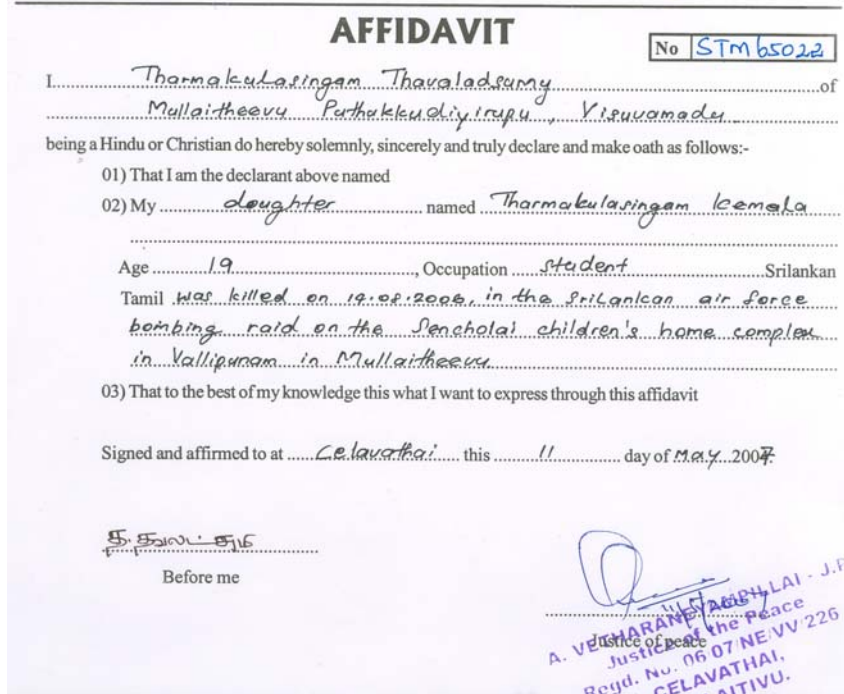 AFFIDAVIT
No STM 65022
I Tharmakulasingam Thavaladsumy of
Mullaitheevu Puthukkudiyirupu, Visuvamadu
being a Hindu or Christian do hereby solemnly, sincerely and truly declare and make oath as follows:-
01) That I am the declarant above named
02) My doughter named Tharmakulasingam kemala
Age 19, Occupation student Srilankan
Tamil was killed on 14.08.2006, in the SriLankan air force
bombing raid on the Sencholai children's home complex
in Vallipunam in Mullaitheevu
03) That to the best of my knowledge this what I want to express through this affidavit
Signed and affirmed to at Celavathai this 11 day of May 2007.
Before me
Justice of peace
A. VETHARANEYAMPILLAI - J.P
Justice of the Peace
Regd. No. 06 07/NE/VV/226
CELAVATHAI,